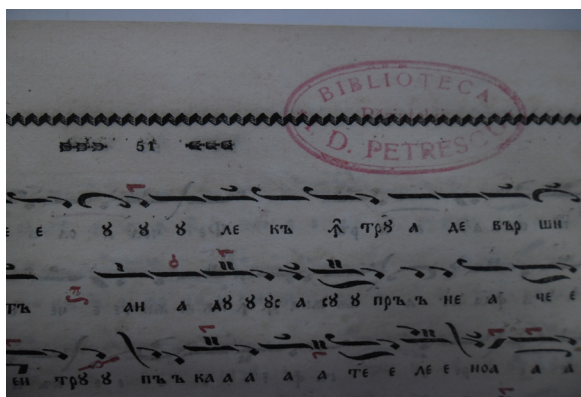 BIBLIOTECA
D. PETRESCU
51
Е Е Ȣ Ȣ Ȣ ЛЕ КЪ Ꙟ ТРȢ А ДЕ ВЪР ШИ
ТЪ АН А ДȢ Ȣ Ȣс А сȢ Ȣ ПРЪ Ъ НЕ А ЧЕ Е
ЕН ТРȢ Ȣ ПЪ Ъ КА А А А А ТЕ Е ЛЕ Е НОА А А